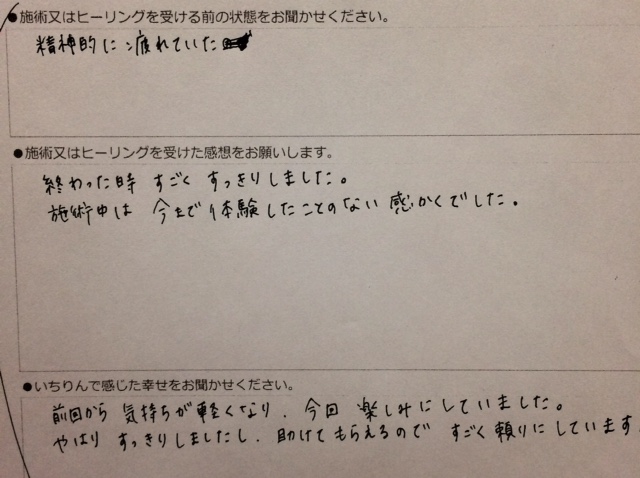 ●施術又はヒーリングを受ける前の状態をお聞かせください。
精神的に疲れていた
●施術又はヒーリングを受けた感想をお願いします。
終わった時 すごく すっきりしました。
施術中は 今まで体験したことのない 感かくでした。
●いちりんで感じた幸せをお聞かせください。
前回から 気持ちが軽くなり、今回 楽しみにしていました。
やはり すっきりしましたし、助けてもらえるので すごく頼りにしています